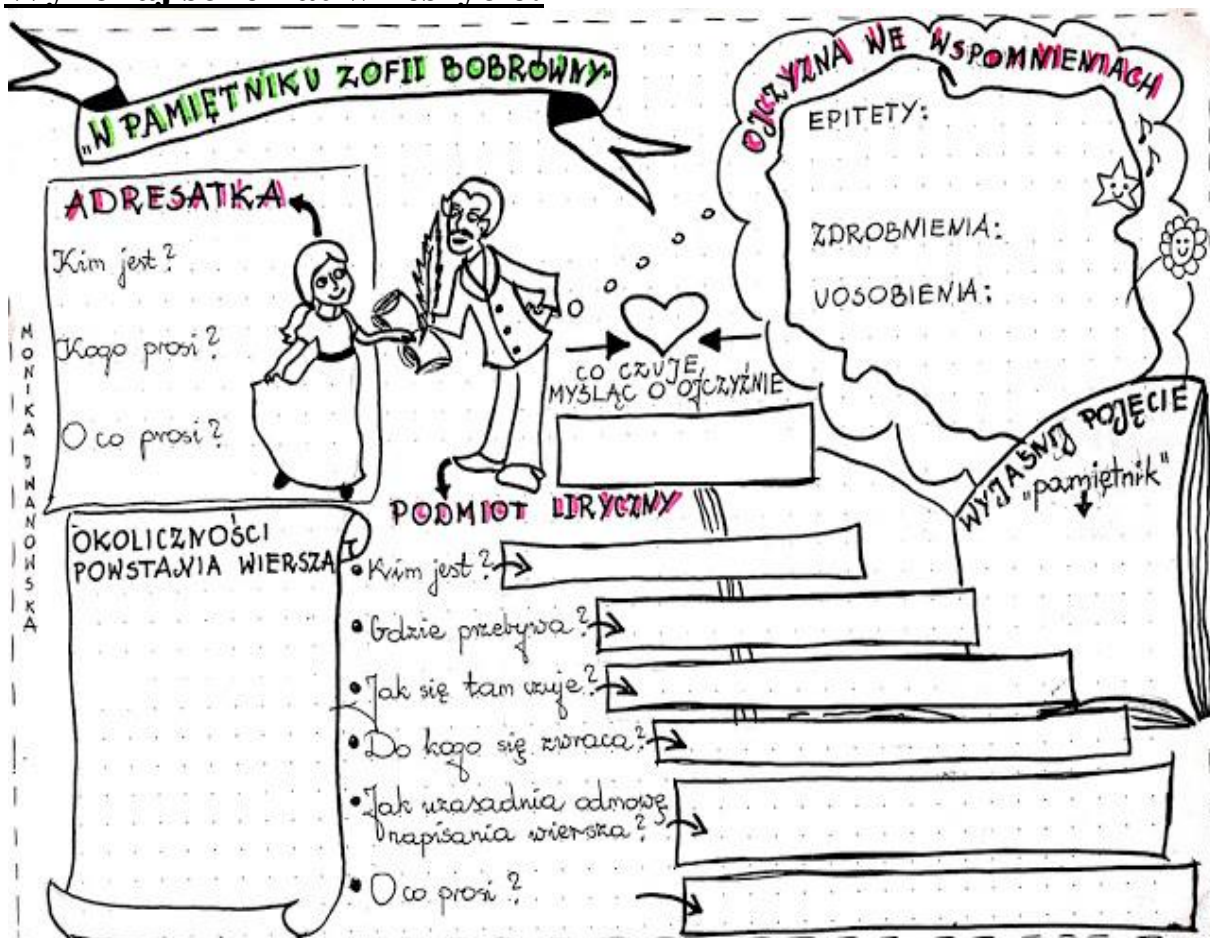 „W PAMIĘTNIKU ZOFII BOBRÓWNY"
OJCZYZNA WE WSPOMNIENIACH
EPITETY:
ZDROBNIENIA:
UOSOBIENIA:
ADRESATKA
Kim jest?
Kogo prosi?
O co prosi?
CO CZUJE,
MYŚLĄC O OJCZYŹNIE
WYJAŚNIJ POJĘCIE
„pamiętnik"
OKOLICZNOŚCI
POWSTANIA WIERSZA
PODMIOT LIRYCZNY
Kim jest?
Gdzie przebywa?
Jak się tam czuje?
Do kogo się zwraca?
Jak uzasadnia odmowę
napisania wiersza?
O co prosi?
MONIKA IWANOWSKA